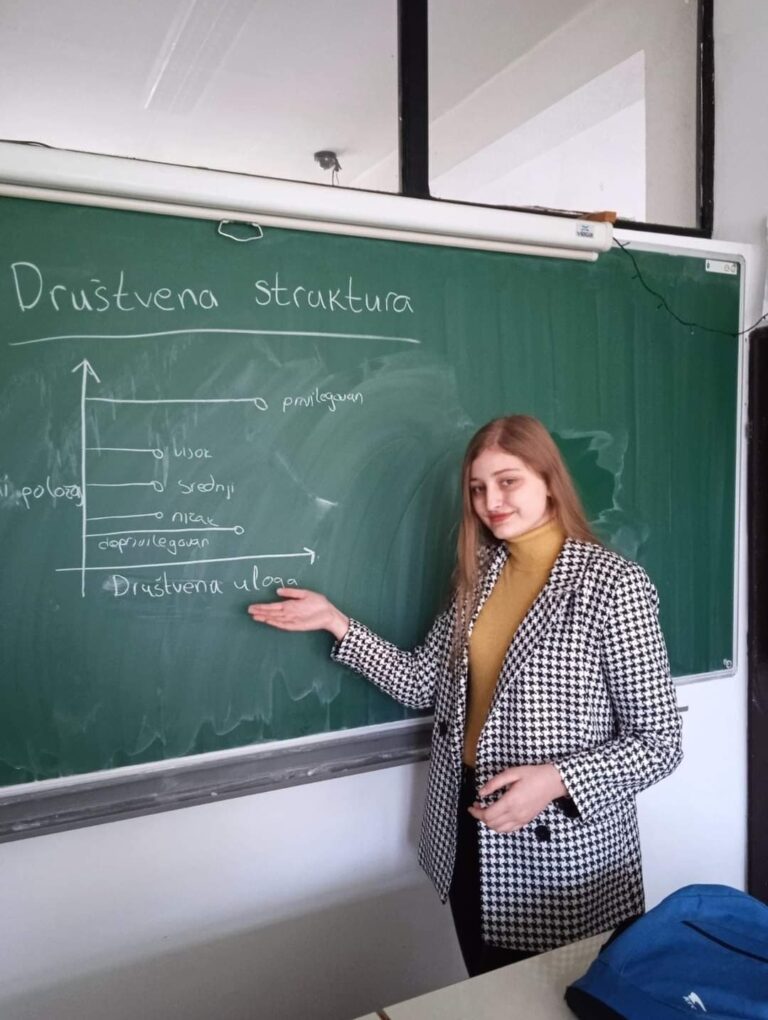 Društvena struktura
privilegovan
visok
i položaj
srednji
nizak
deprivilegovan
Društvena uloga